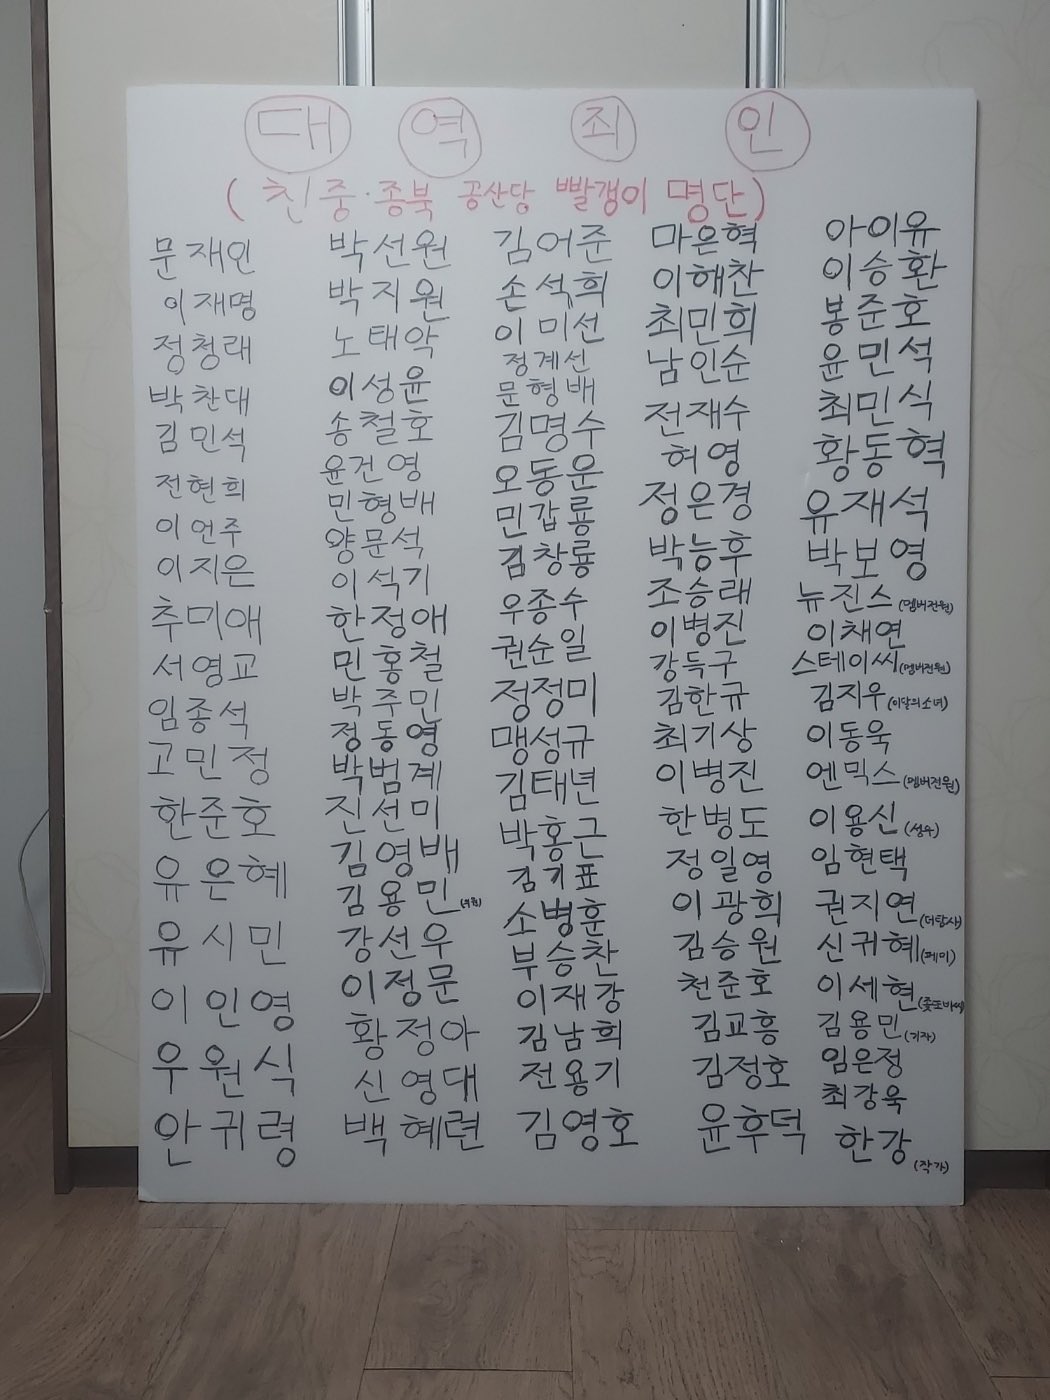 대 역 죄 인
( 친중·종북 공산당 빨갱이 명단 )
문재인
이재명
정청래
박찬대
김민석
전현희
이언주
이지은
추미애
서영교
임종석
고민정
한준호
유은혜
유시민
이인영
우원식
안귀령
박선원
박지원
노태악
이성윤
송철호
윤건영
민형배
양문석
이석기
한정애
민홍철
박주민
정동영
박범계
진선미
김영배
김용민(의원)
강선우
이정문
황정아
신영대
백혜련
김어준
손석희
이미선
정계선
문형배
김명수
오동운
민갑룡
김창룡
우종수
권순일
정정미
맹성규
김태년
박홍근
김기표
소병훈
부승찬
이재강
김남희
전용기
김영호
마은혁
이해찬
최민희
남인순
전재수
허영
정은경
박능후
조승래
이병진
강득구
김한규
최기상
이병진
한병도
정일영
이광희
김승원
천준호
김교흥
김정호
윤후덕
아이유
이승환
봉준호
윤민석
최민식
황동혁
유재석
박보영
뉴진스(멤버전원)
이채연
스테이씨(멤버전원)
김지우(이달의소녀)
이동욱
엔믹스(멤버전원)
이용신(성우)
임현택
권지연(더탐사)
신귀혜(페미)
이세현(꽃또바켜)
김용민(기자)
임은정
최강욱
한강(작가)